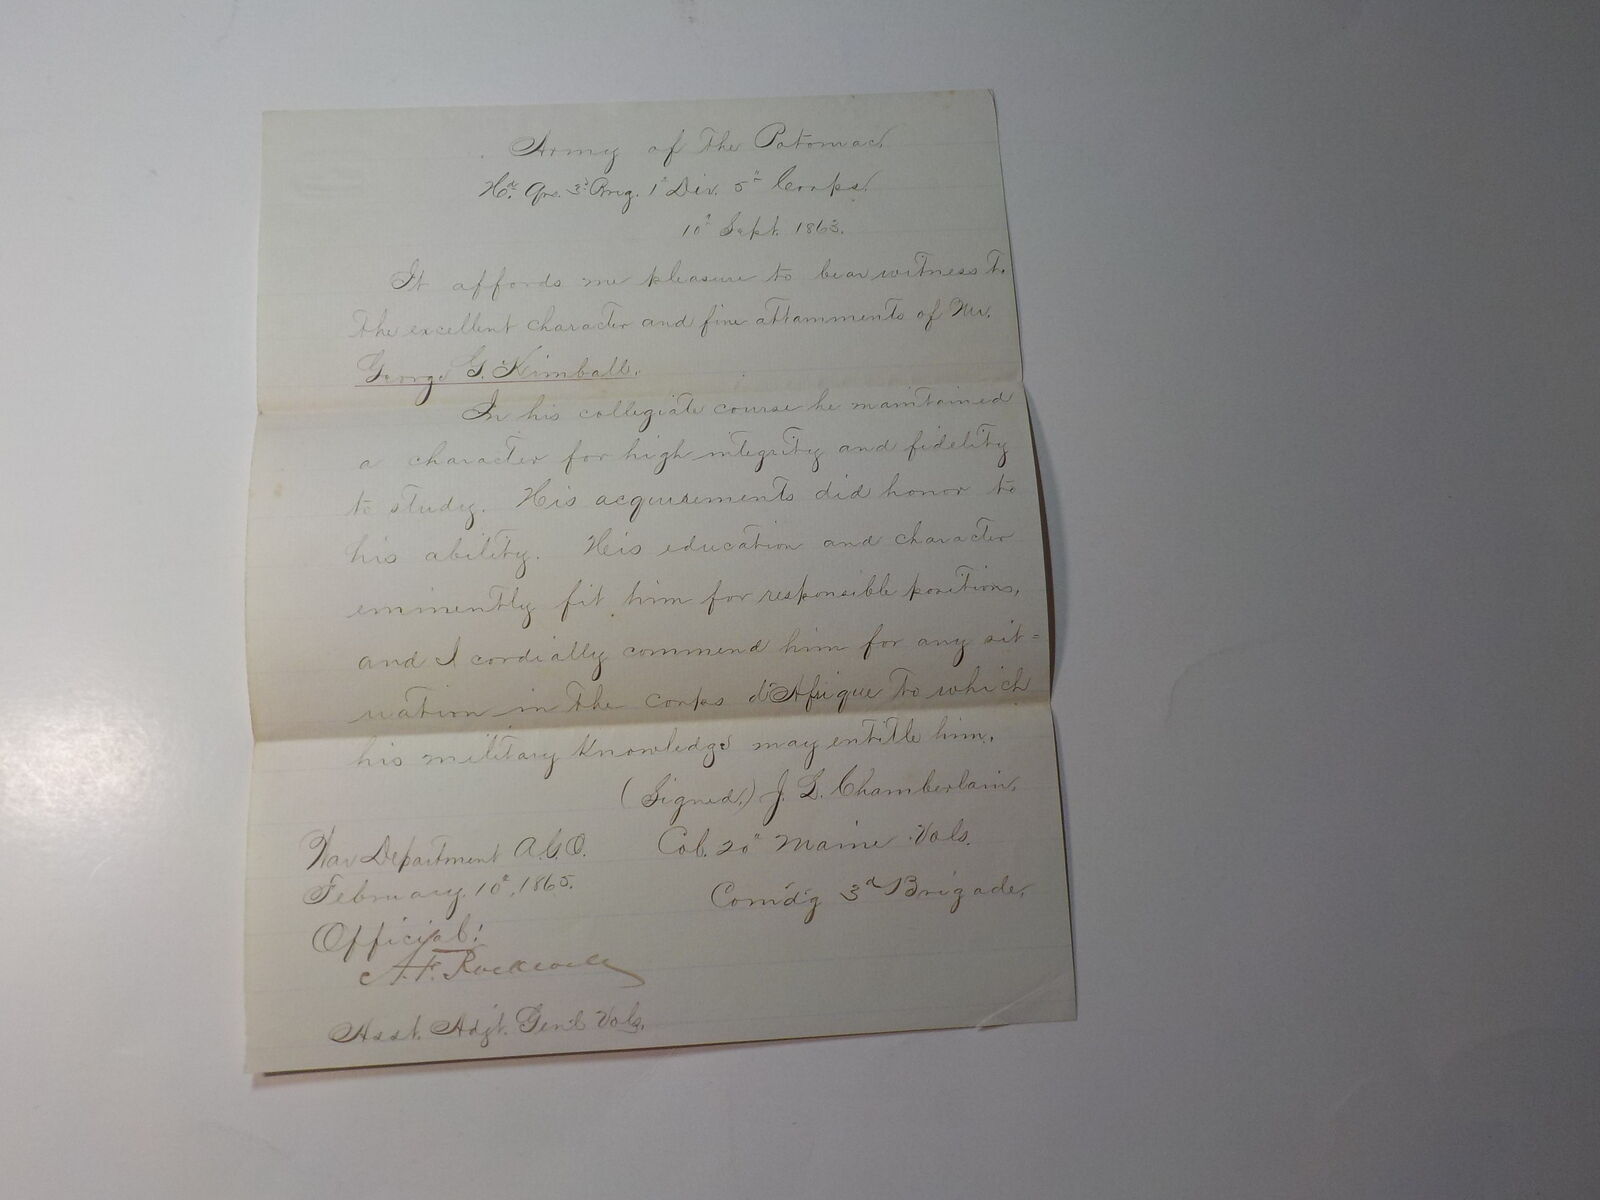 Army of the Potomac,
Hd. Qrs. 3d Brig. 1st Div. 5th Corps,
10th Sept. 1863.
It affords me pleasure to bear witness to
the excellent character and fine attainments of Mr.
George G. Kimball.
In his collegiate course he maintained
a character for high integrity and fidelity
to study. His acquirements did honor to
his ability. His education and character
eminently fit him for responsible positions,
and I cordially commend him for any sit=
uation in the corps d'Afrique to which
his military knowledge may entitle him.
(Signed,) J. L. Chamberlain,
Col. 20th Maine Vols.
Com'd'g 3d Brigade,
War Department A.G.O.
February 10th, 1865.
Official:
A. F. Rockwell
Asst. Adjt. Gen'l Vols.